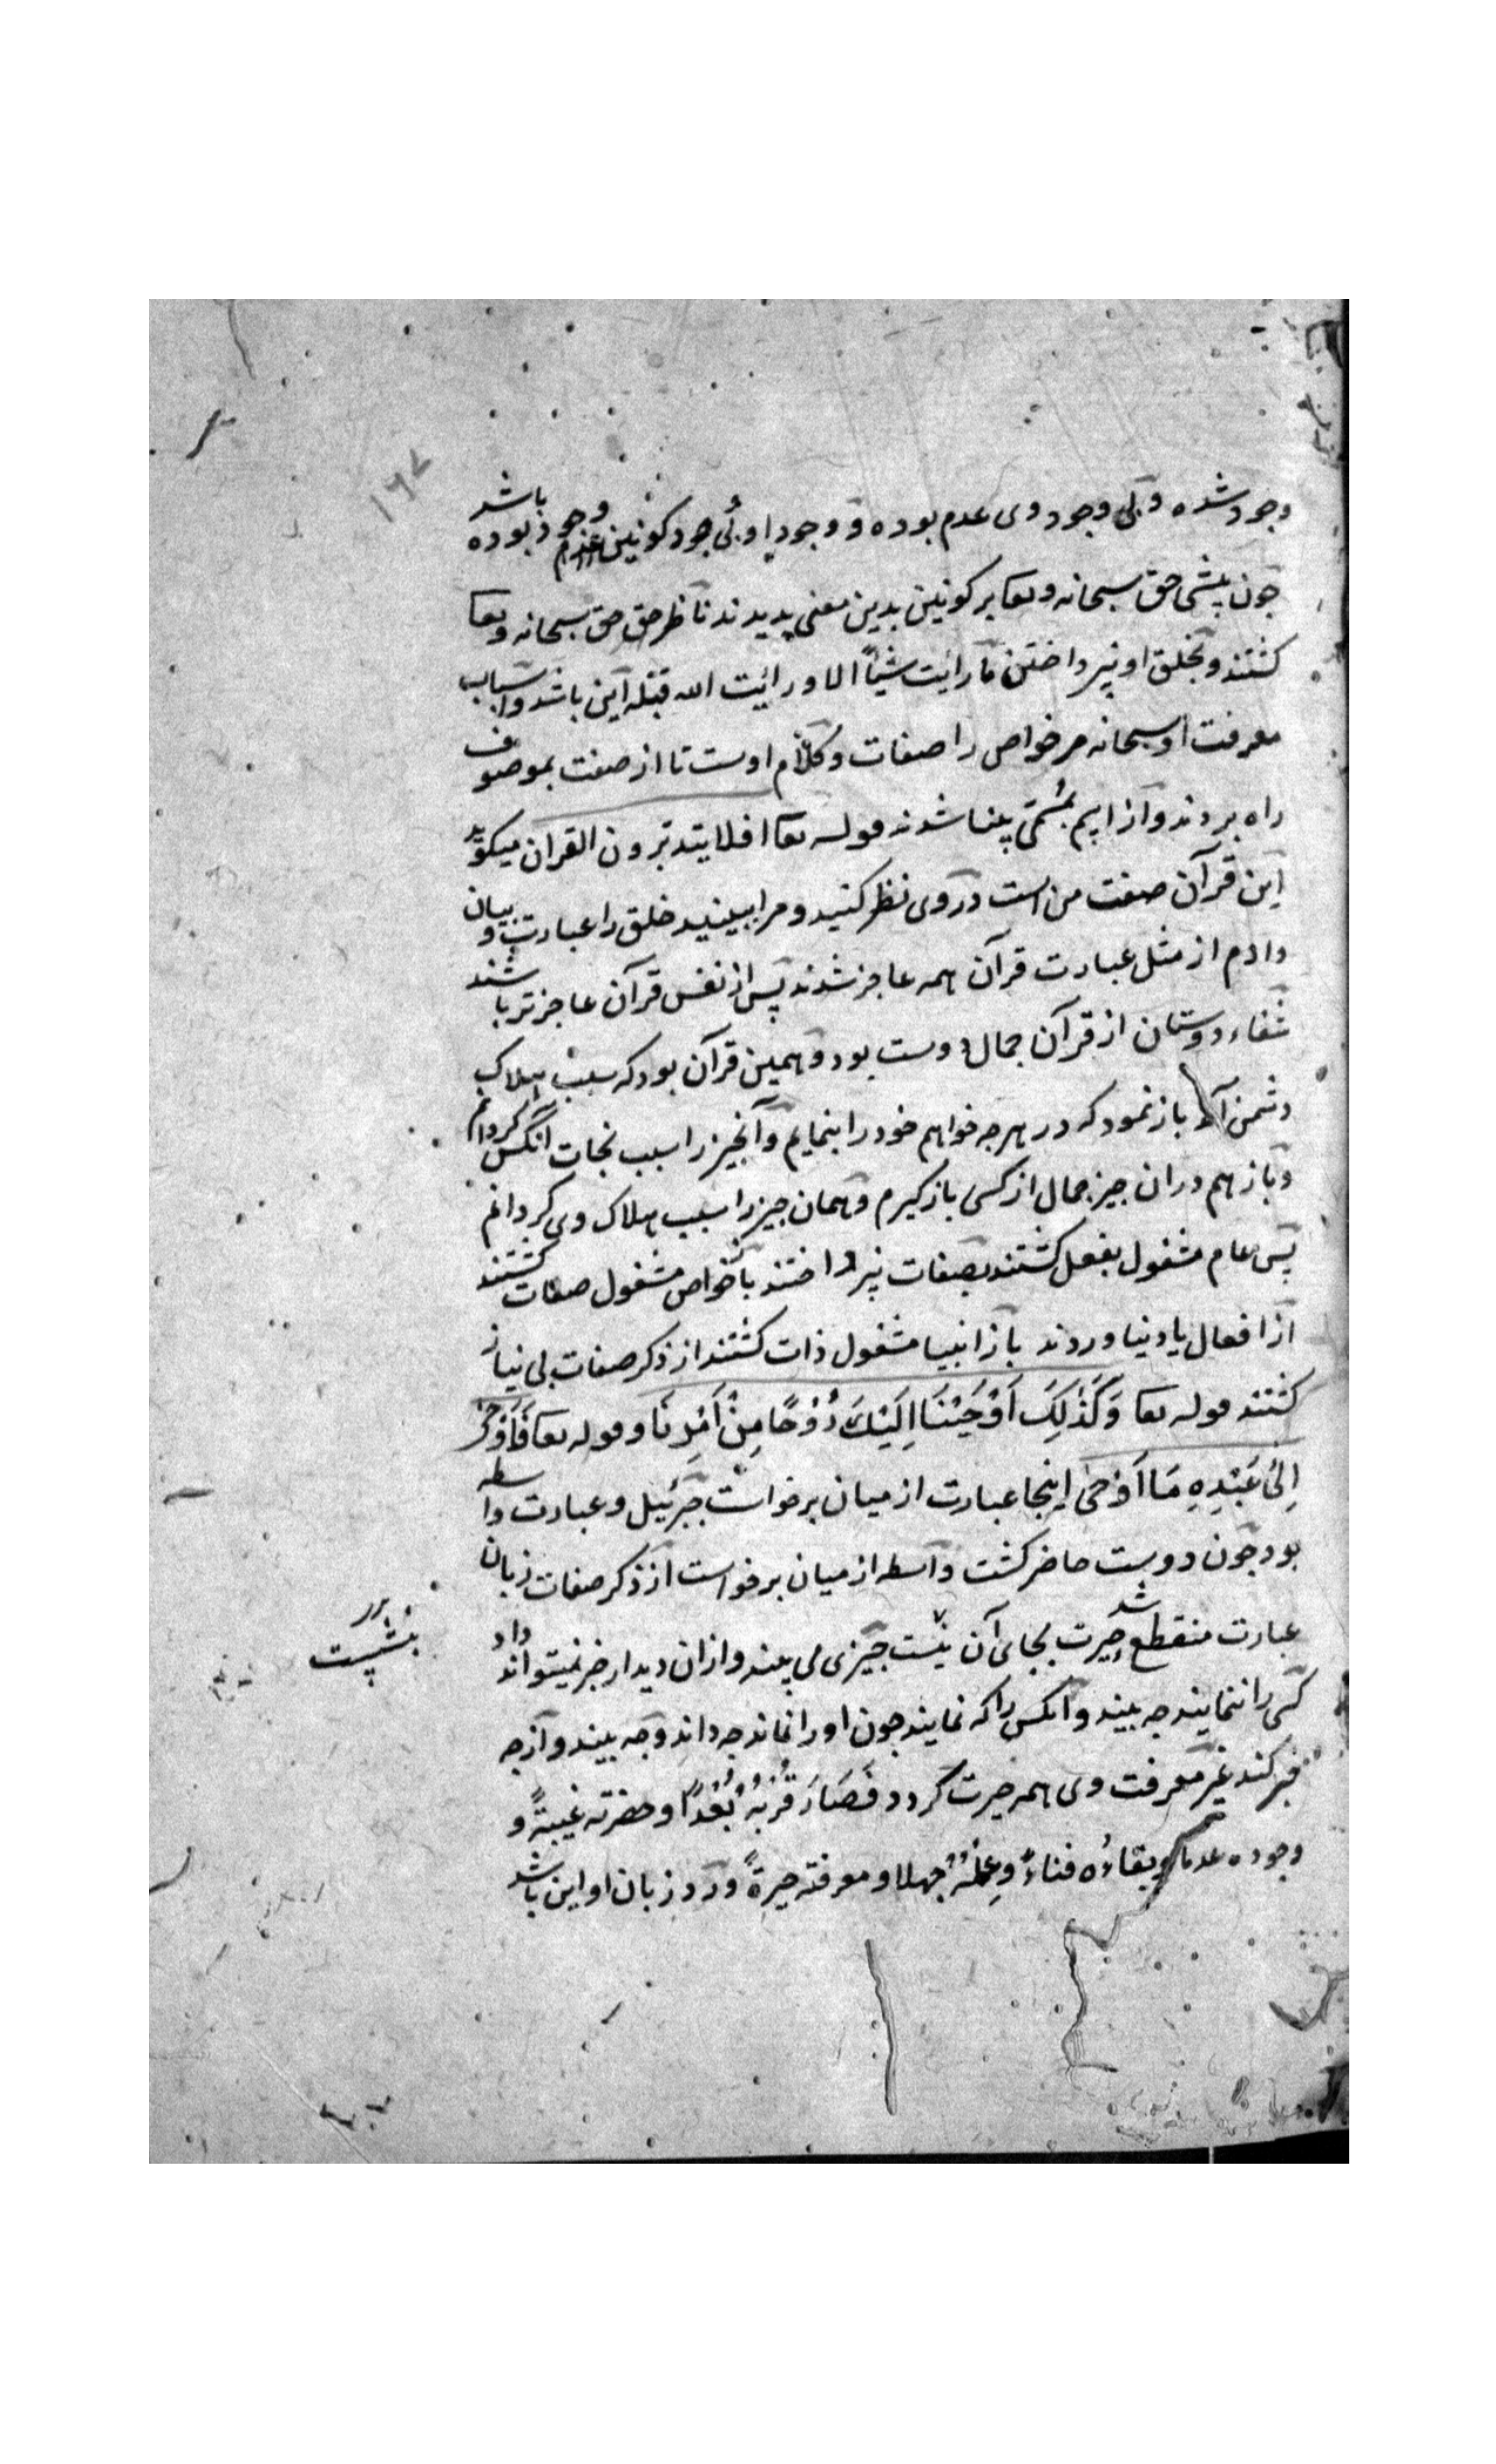 ۱۶۷
وجود شده و بی وجود وی عدم بوده و وجود او بی جود کونین وجود نبوده باشد
چون پیشی حق سبحانه وتعا بر کونین بدین معنی پدیدند ناظر حق حق سبحانه وتعا
کشتند و بخلق او نپرداختن ما رایت شیئاً الا و رایت الله قبله این باشد و اسباب
معرفت او سبحانه مر خواص را صفات و کلام اوست تا از صفت بموصوف
راه بردند و از اسم بمسمّی بینا شدند قوله تعا افلا یتدبرون القران میکوید
این قرآن صفت من است در وی نظر کنید و مرا ببینید خلق را عبادت و بیان
دادم از مثل عبارت قرآن همه عاجز شدند پس از نفس قرآن عاجزتر باشند
شفاء دوستان از قرآن جمال دوست بود و همین قرآن بود که سبب هلاک
دشمن باز نمود که در هرچه خواهم خود را بنمایم و آنچیز را سبب نجات آنکس کردانم
و باز هم دران چیز جمال از کسی بازکیرم و همان چیز را سبب هلاک وی کردانم
پس عام مشغول بفعل کشتند بصفات نپرداختند باز خواص مشغول صفات کشتند
از افعال یاد نیاوردند باز انبیا مشغول ذات کشتند از ذکر صفات بی نیاز
کشتند قوله تعا وَکَذٰلِکَ اَوْحَیْنَا اِلَیْکَ رُوْحًا مِنْ اَمْرِنَا و قوله تعا فَاَوْحٰی
اِلٰی عَبْدِهِ مَا اَوْحٰی اینجا عبارت از میان برخواست جبرئیل و عبارت واسطه
بود چون دوست حاضر کشت واسطه از میان برخواست از ذکر صفات زبان
عبارت منقطع شد حیرت بجای آن نشست چیزی می بیند و ازان دیدار خبر نمیتواند داد
کسی را ننمایند چه بیند و آنکس را که نمایند چون او را نماند چه داند و چه بیند و از چه
خبر کند غیر معرفت وی همه حیرت کردد فَصَارَ قُرْبُهُ بُعْدًا و حضرته غیبةً و
وجوده عدما و بقاءه فناءً وعِلْمُهُ جهلا و معرفته حیرةً و ورد زبان او این باشد